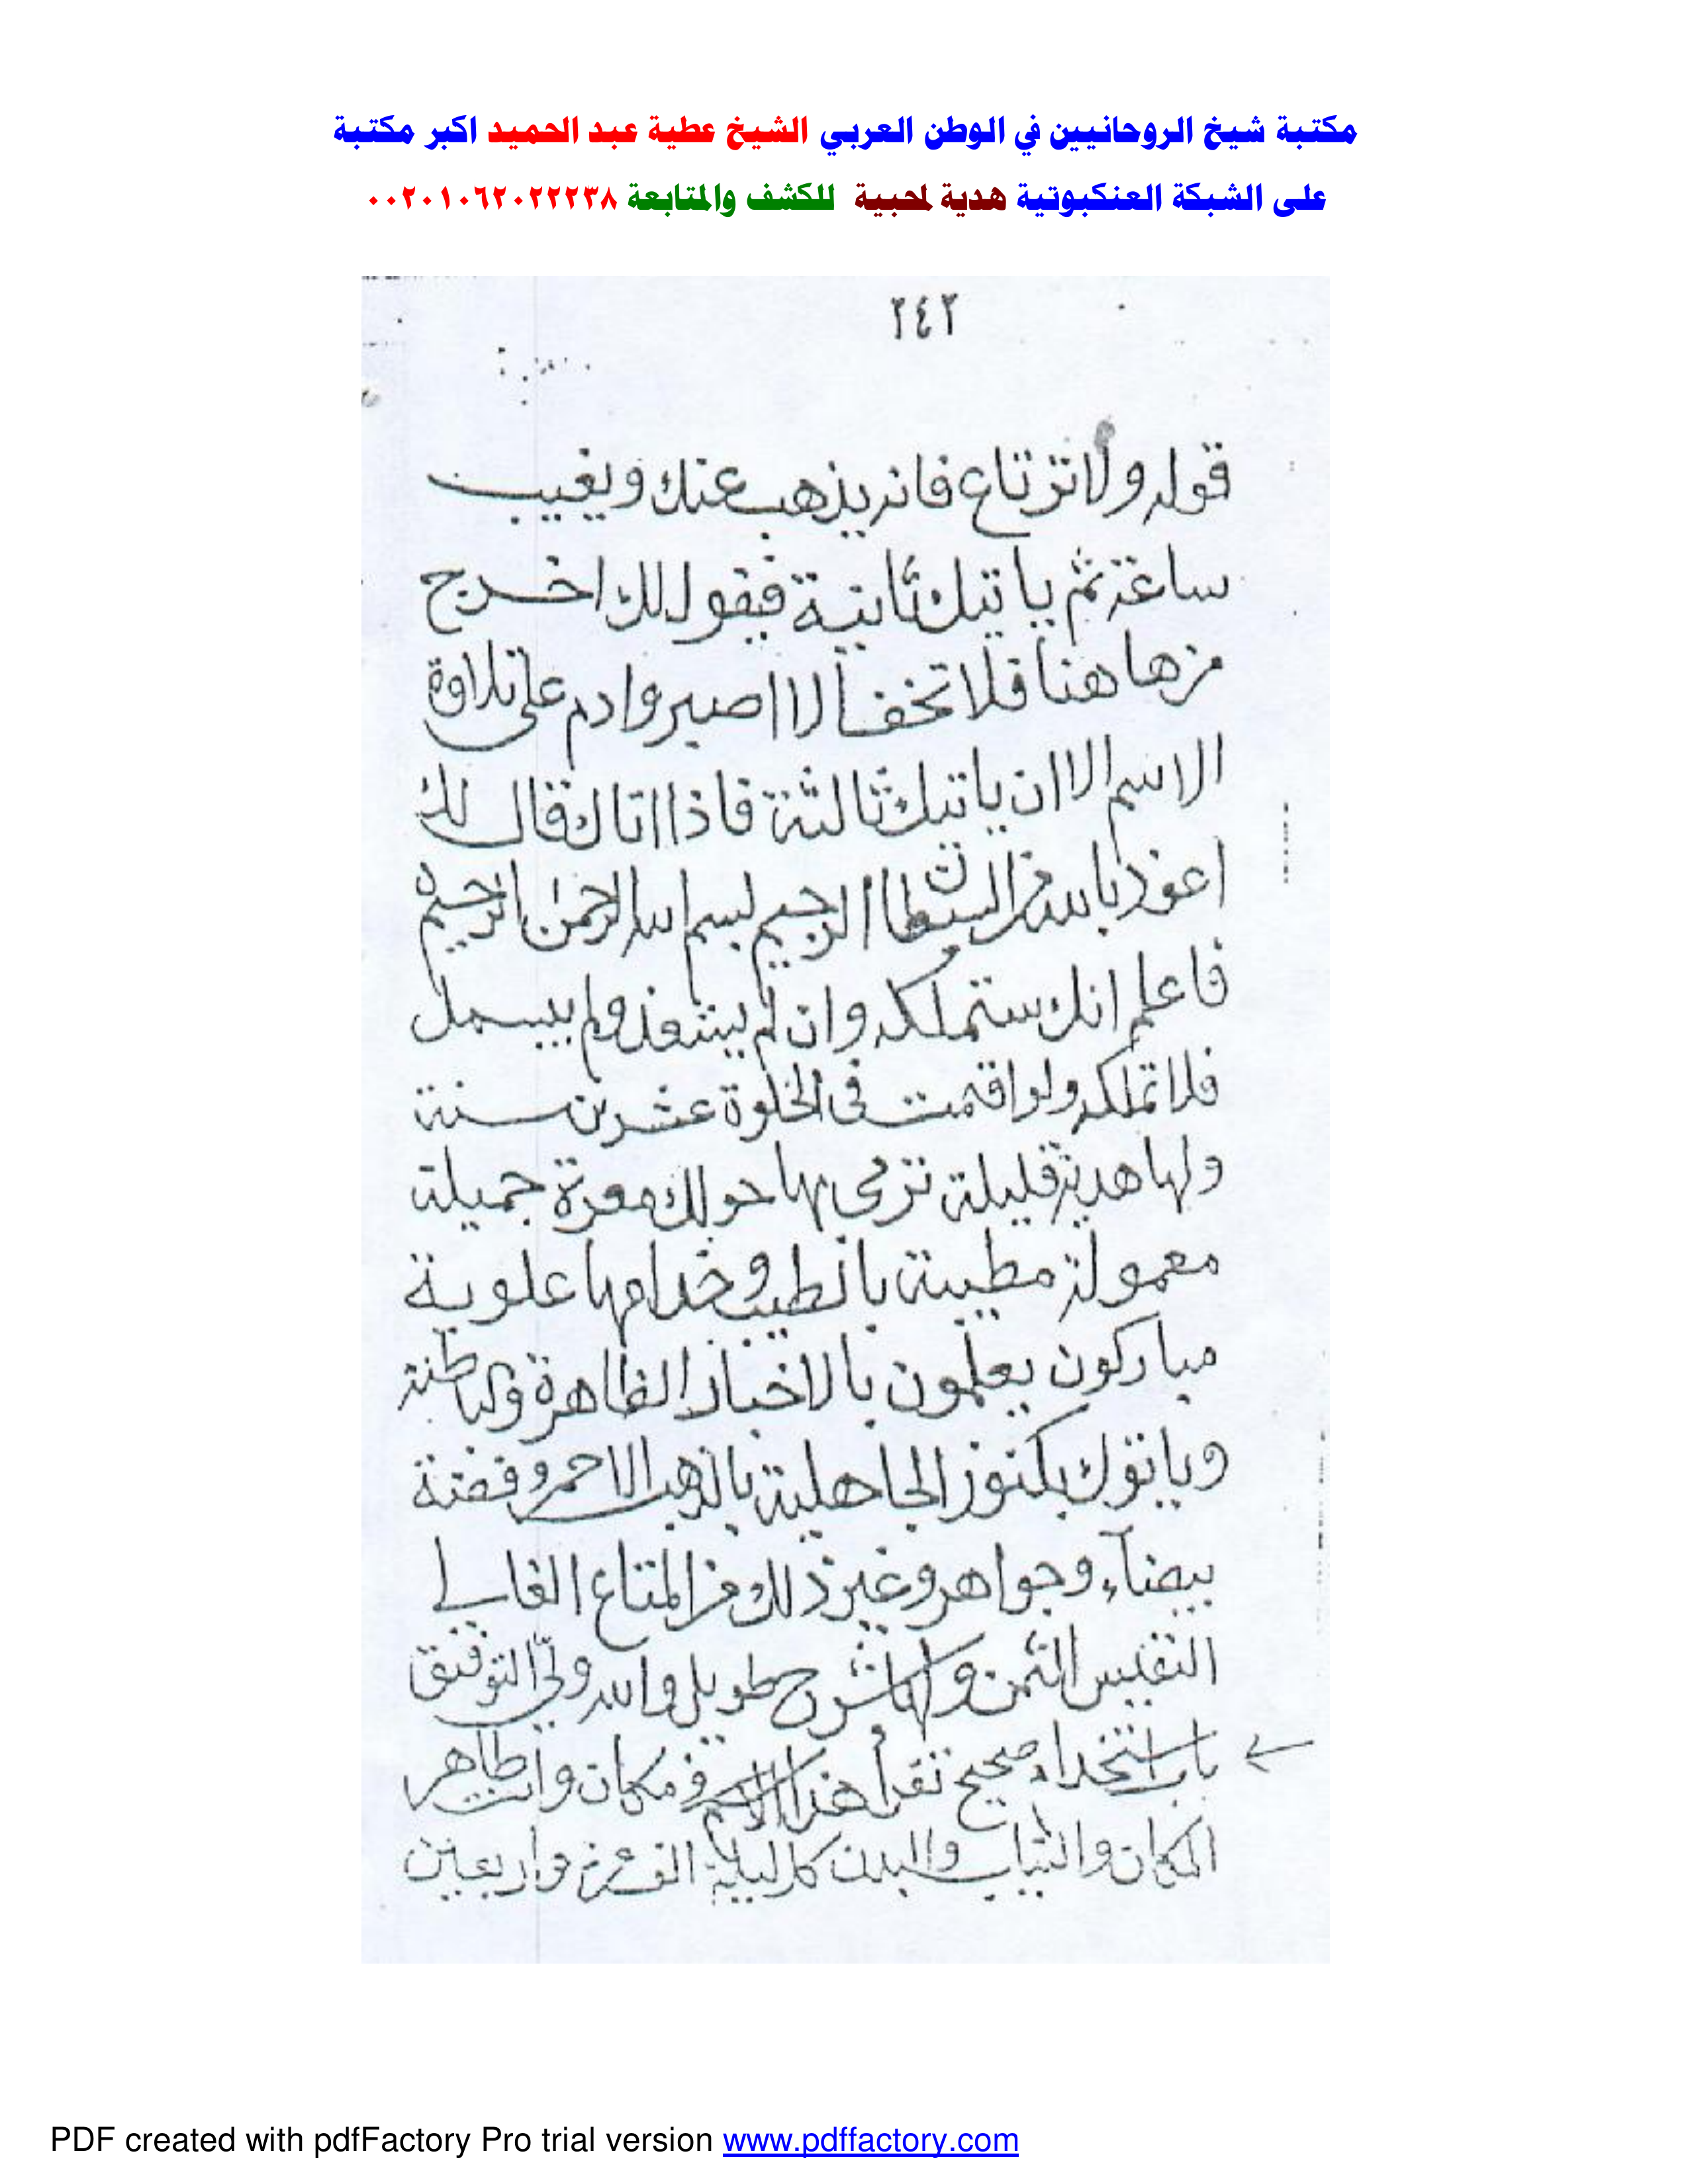 مكتبة شيخ الروحانيين في الوطن العربي الشيخ عطية عبد الحميد اكبر مكتبة
على الشبكة العنكبوتية هدية لمحبية للكشف والمتابعة ٠٠٢٠١٠٦٢٠٢٢٢٣٨
٢٤٢
قوله ولا ترتاع فانه يذهب عنك ويغيب
ساعة ثم ياتيك ثانية فيقول لك اخرج
من هاهنا فلا تخف الا اصبر وادم على تلاوة
الاسم الا ان ياتيك ثالثة فاذا اتاك قال لك
اعوذ بالله من الشيطان الرجيم بسم الله الرحمن الرحيم
فاعلم انك ستملكه وان لم يتعذ ولم يبسمل
فلا تملكه ولو اقمت في الخلوة عشرين سنة
ولها هدية قليلة ترمى بها حولك جميلة
معمولة مطيبة بالطيب وخدامها علوية
مباركون يعلمون بالاخبار الظاهرة والباطنة
وياتوك بكنوز الجاهلية بالذهب الاحمر وفضة
بيضآء وجواهر وغير ذلك من المتاع الغالي
النفيس الثمن ولها شرح طويل والله ولي التوفيق
باب استخدام صحيح تقرأ هذا الاسم في مكان وانت طاهر
المكان والثياب والبدن كل ليلة الف مرة واربعين
PDF created with pdfFactory Pro trial version www.pdffactory.com